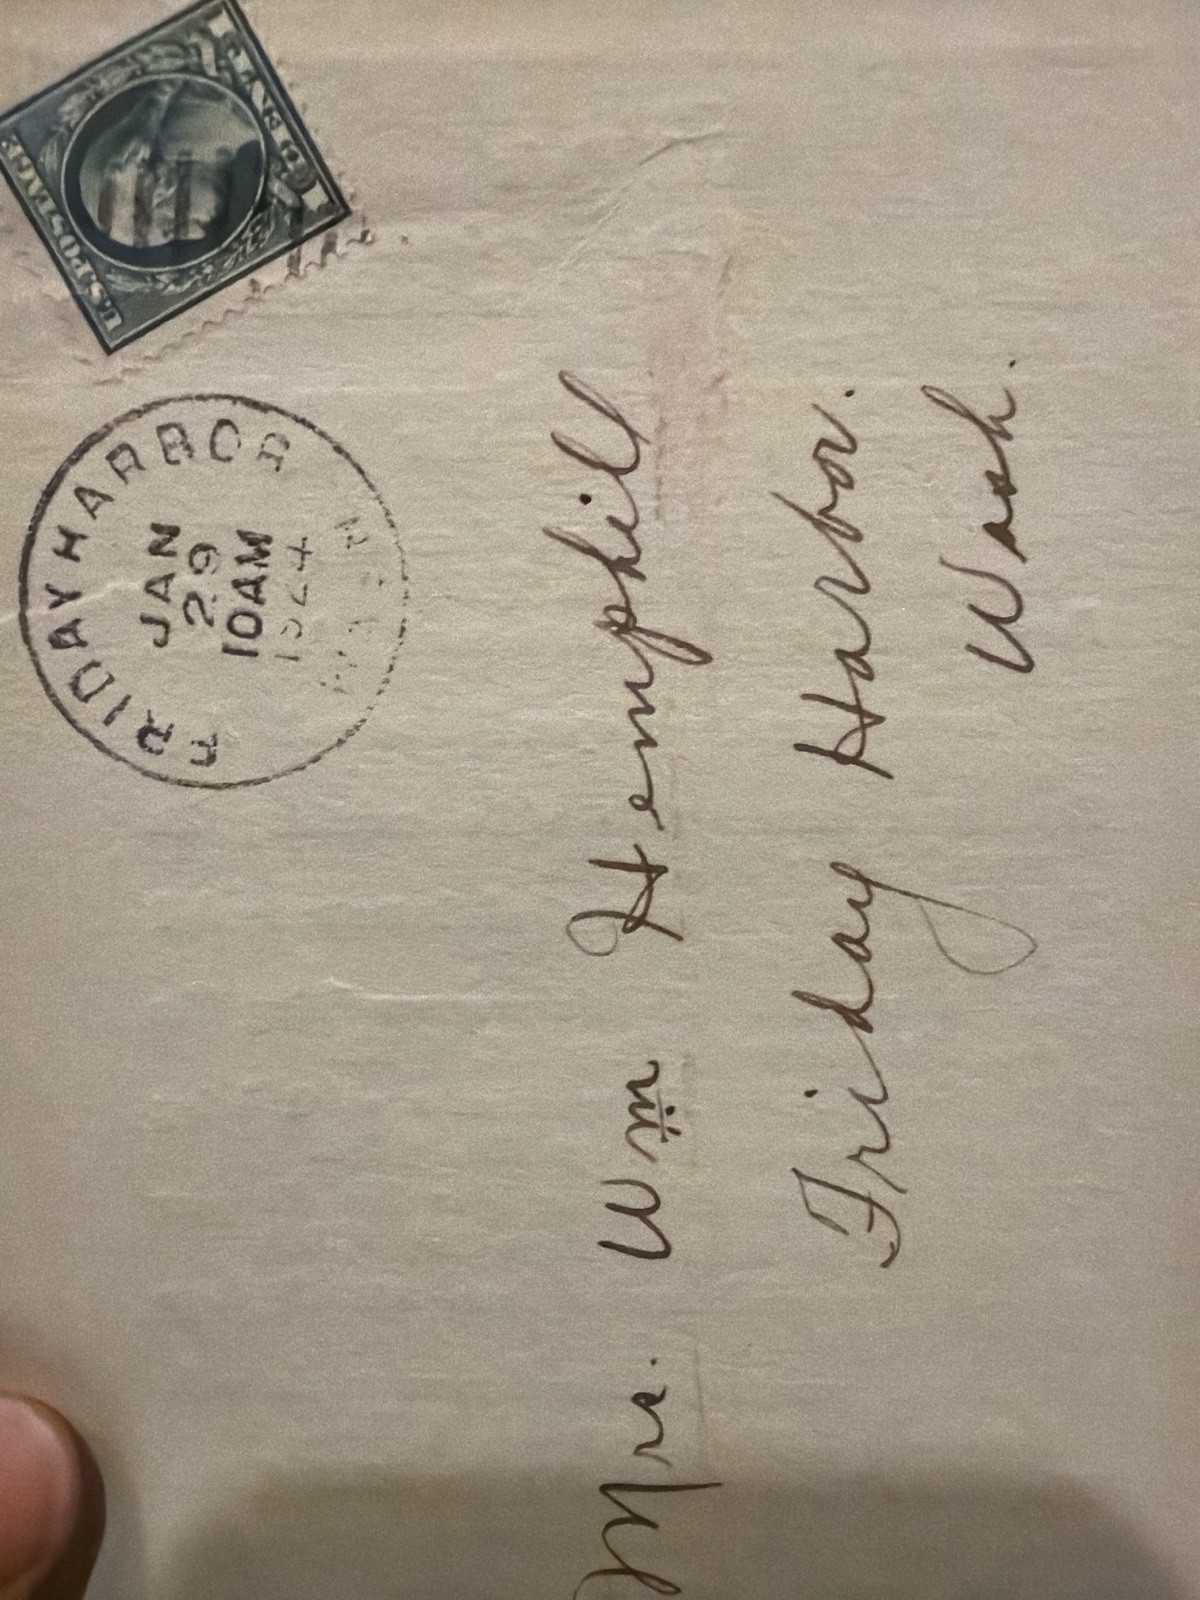 ONE CENT
U.S. POSTAGE
FRIDAY HARBOR
JAN
29
10 AM
1924
Mrs. Wm Hemphill
Friday Harbor.
Wash.